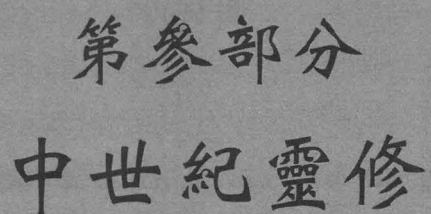 第參部分
中世紀靈修